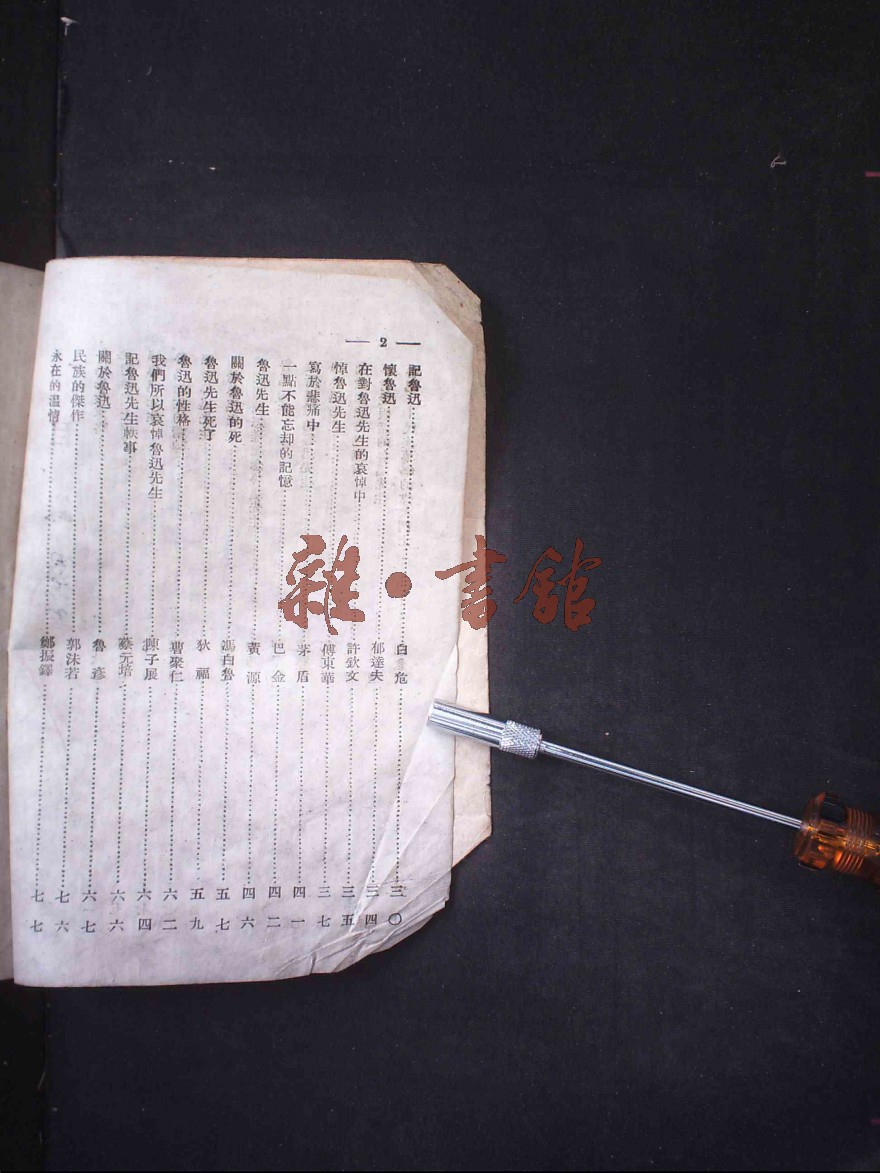 — 2 —
記魯迅……白危……三〇
懷魯迅……郁達夫……三四
在對魯迅先生的哀悼中……許欽文……三五
悼魯迅先生……傅東華……三七
寫於悲痛中……茅盾……四一
一點不能忘却的記憶……巴金……四二
魯迅先生……黃源……四六
關於魯迅的死……馮白魯……五七
魯迅先生死了……狄福……五九
魯迅的性格……曹聚仁……六二
我們所以哀悼魯迅先生……陳子展……六四
記魯迅先生軼事……蔡元培……六六
關於魯迅……魯彥……六七
民族的傑作……郭沫若……七六
永在的溫情……鄭振鐸……七七
雜·書館